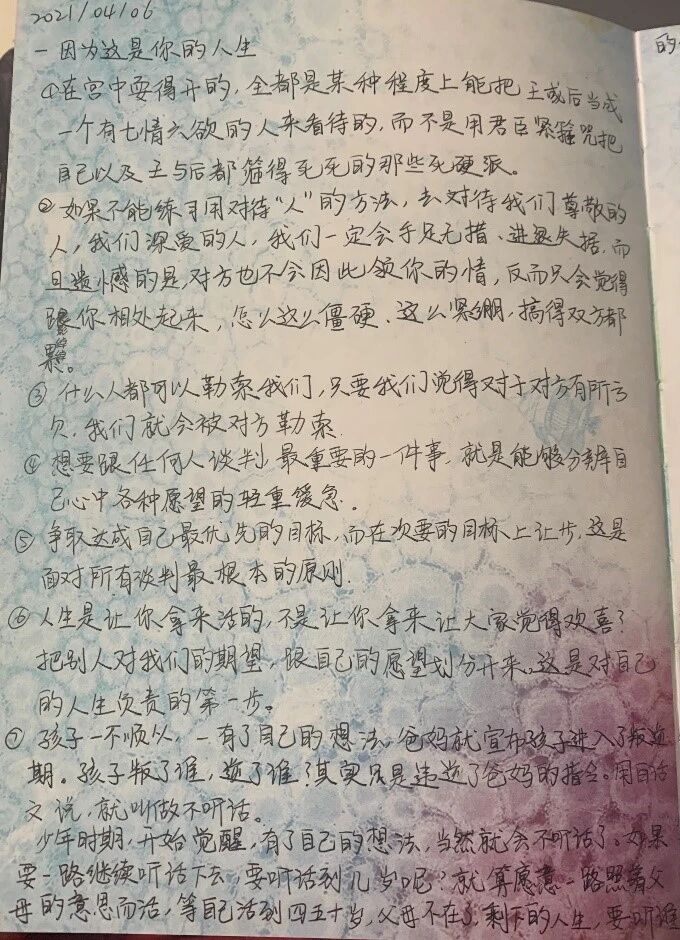 2021/04/06
一 因为这是你的人生
①在宫中耍得开的，全都是某种程度上能把王或后当成
一个有七情六欲的人来看待的，而不是用君臣紧箍咒把
自己以及王与后都箍得死死的那些死硬派。
②如果不能练习用对待“人”的方法，去对待我们尊敬的
人，我们深爱的人，我们一定会手足无措、进退失据，而
且遗憾的是，对方也不会因此领你的情，反而只会觉得
跟你相处起来，怎么这么僵硬、这么紧绷，搞得双方都
累。
③什么人都可以勒索我们，只要我们觉得对于对方有所亏
欠，我们就会被对方勒索.
④想要跟任何人谈判，最重要的一件事，就是能够分辨自
己心中各种愿望的轻重缓急。
⑤争取达成自己最优先的目标，而在次要的目标上让步，这是
面对所有谈判最根本的原则.
⑥人生是让你拿来活的，不是让你拿来让大家觉得欢喜？
把别人对我们的期望，跟自己的愿望划分开来，这是对自己
的人生负责的第一步。
⑦孩子一不顺从，一有了自己的想法，爸妈就宣布孩子进入了叛逆
期。孩子叛了谁，逆了谁？其实只是违逆了爸妈的指令。用白话
文说，就叫做不听话。
少年时期，开始觉醒，有了自己的想法，当然就会不听话了。如果
要一路继续听话下去，要听话到几岁呢？就算愿意一路照着父
母的意思而活，等自己活到四五十岁，父母不在了，剩下的人生，要听谁
的